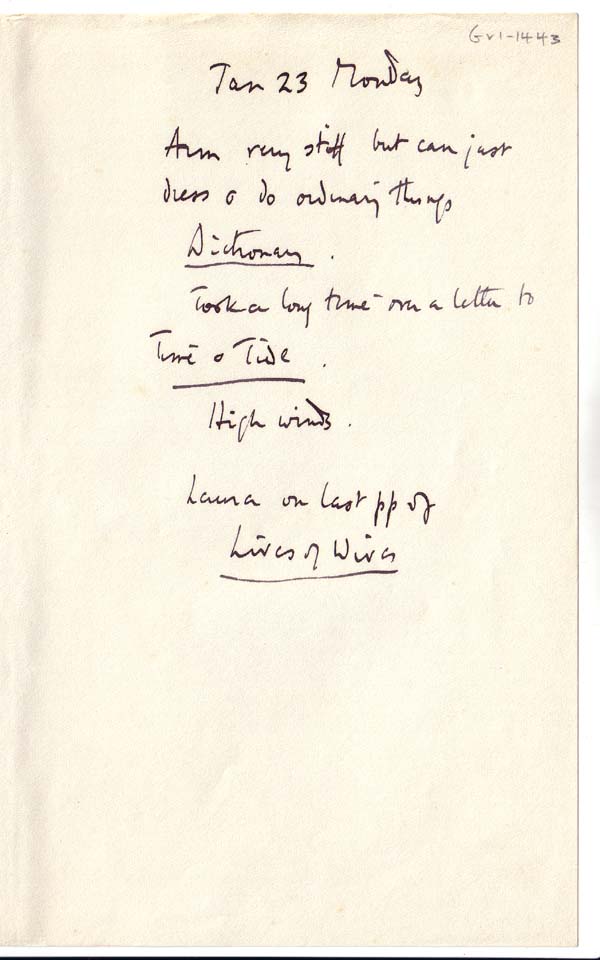 Gv1-1443
Jan 23 Monday
Arm very stiff but can just
dress & do ordinary things
Dictionary.
Took a long time over a letter to
Time & Tide.
High winds.
Laura on last pp of
Lives of Wives